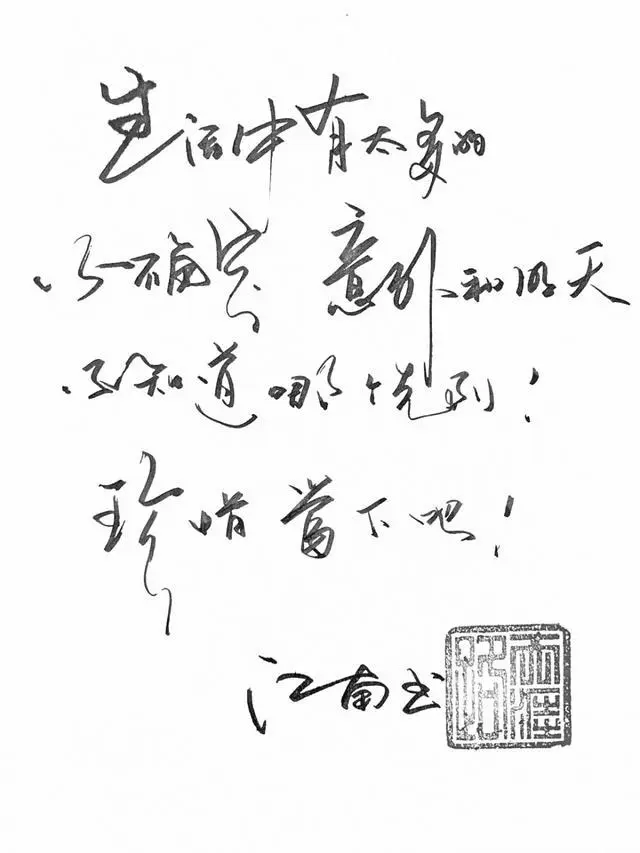 生活中有太多的
不确定 意外和明天
不知道哪个先到！
珍惜當下吧！
江南书